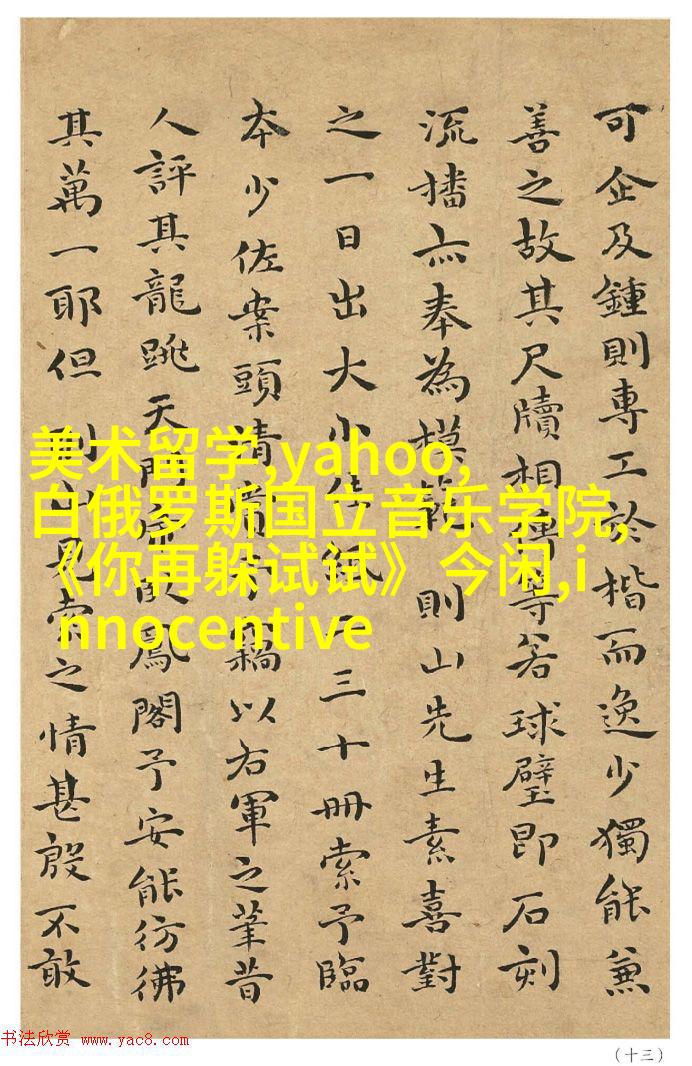 可企及鍾則專工於楷而逸少獨能兼
善之故其尺牘相傳等若球璧即石刻
流播亦奉為模範則山先生素喜對
之一日出大小三十冊索予臨
本少佐案頭清竊以右軍之筆昔
人評其龍跳天門虎臥鳳閣予安能彷彿
其萬一耶但則山見索之情甚殷不敢
美术留学,yahoo,
白俄罗斯国立音乐学院,
《你再躲试试》今闲,i
nnocentive
书法欣赏 www.yac8.com
（十三）